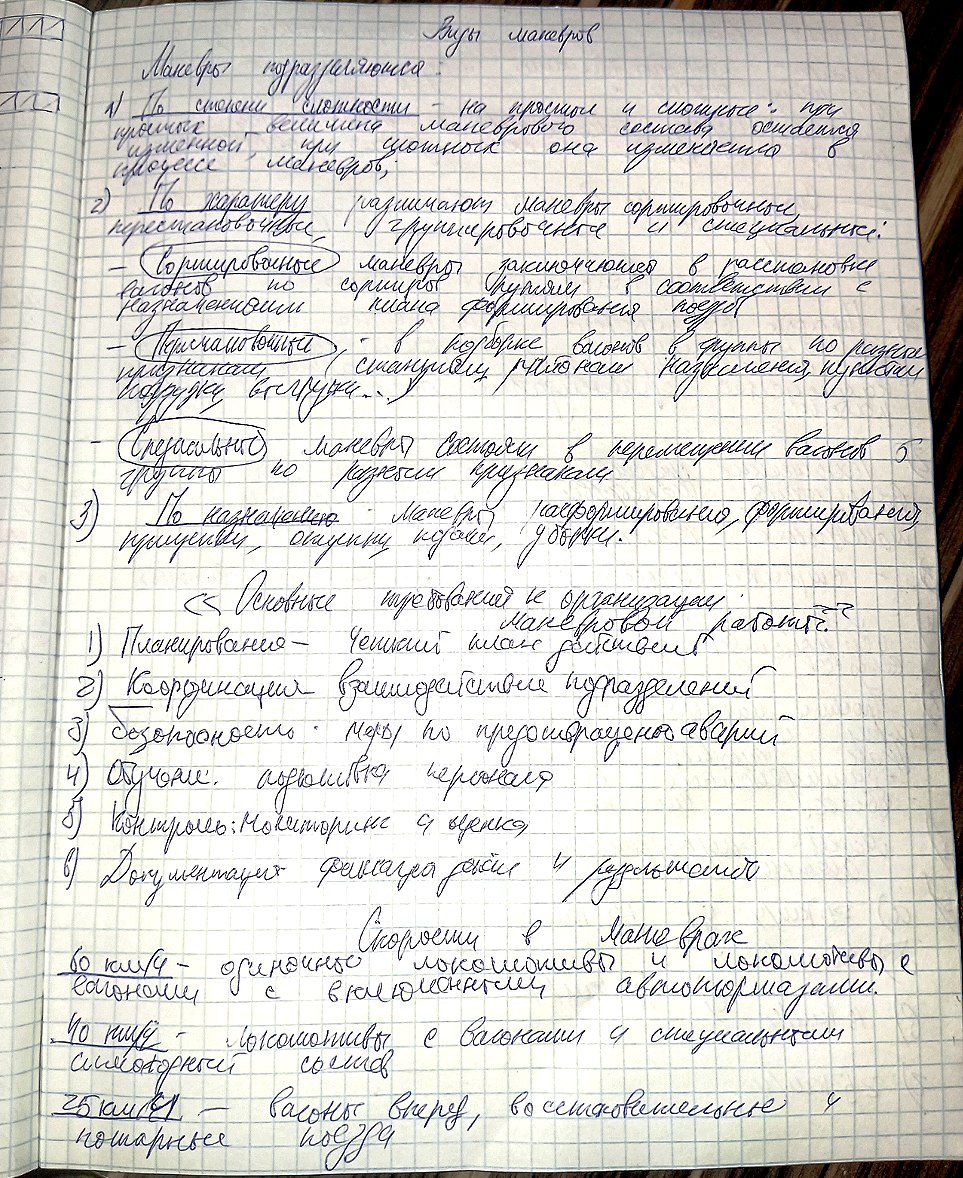 Виды маневров
Маневры подразделяются:
1) По степени сложности – на простые и сложные: при
простых величина маневрового состава остается
изменной, при сложных она изменяется в
процессе маневров;
2) По характеру различают маневры сортировочные,
перестановочные, группировочные и специальные:
– Сортировочные маневры заключаются в расстановке
вагонов по сортиров путям в соответствии с
назначениями плана формирования поезда
– Перестановочные, - в подборке вагонов в группы по разным
признакам (станциям, районам назначения, пунктам
погрузки, выгрузки...)
– Специальные маневры состоят в перемещении вагонов б
группы по разным признакам
3) По назначению маневры расформирования, формирования,
прицепки, отцепки, подачи, уборки.
<< Основные требования к организации
маневровой работы: >>
1) Планирования – Четкий план действий
2) Координация взаимодействие подразделений
3) Безопасность - меры по предотвращению аварий
4) Обучение: подготовка персонала
5) Контроль: Мониторинг и оценка
6) Документация фиксация действ и результатов
Скорости в маневрах
60 км/ч – одиночные локомотивы и локомотивы с
вагонами с включенными автотормазами.
40 км/ч - локомотивы с вагонами и специальным
самоходный состав
25 км/ч – вагоны вперед, восстановительные и
пожарные поезда